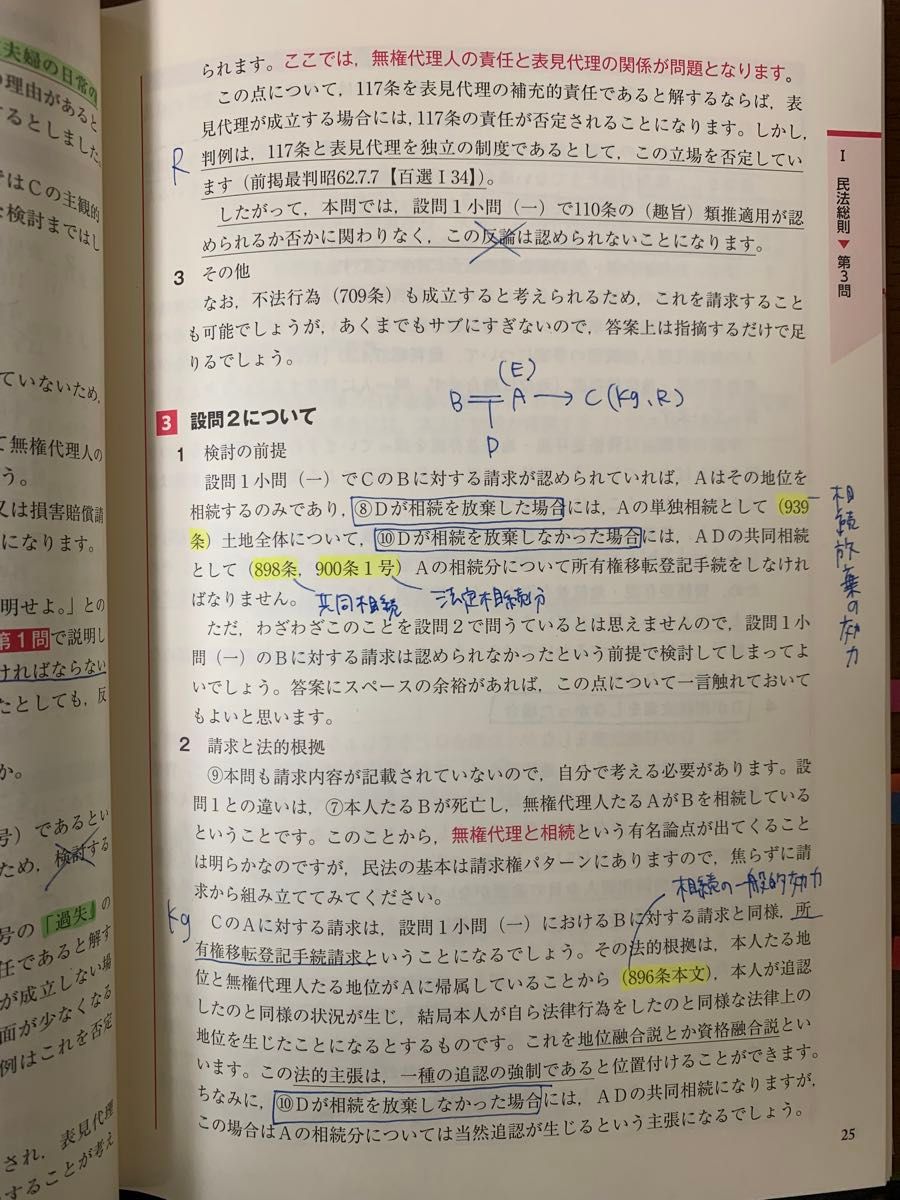 夫婦の日常の
の理由があると
するとしました。
ではCの主観的
な検討まではし
ていないため,
て無権代理人の
う。
又は損害賠償請
になります。
明せよ。」との
第1問で説明し
ければならない
たとしても,反
か。
号)であるとい
ため,検討する
号の「過失」の
任であると解す
が成立しない場
面が少なくなる
例はこれを否定
され,表見代理
することが考え
られます。ここでは,無権代理人の責任と表見代理の関係が問題となります。
この点について,117条を表見代理の補充的責任であると解するならば,表
見代理が成立する場合には,117条の責任が否定されることになります。しかし,
R
判例は,117条と表見代理を独立の制度であるとして,この立場を否定してい
ます(前掲最判昭62.7.7【百選Ⅰ34】)。
したがって,本問では,設問1小問(一)で110条の(趣旨)類推適用が認
められるか否かに関わりなく,この反論は認められないことになります。
3 その他
なお,不法行為(709条)も成立すると考えられるため,これを請求すること
も可能でしょうが,あくまでもサブにすぎないので,答案上は指摘するだけで足
りるでしょう。
(E)
B A → C(Kg、R)
D
3 設問2について
1 検討の前提
設問1小問(一)でCのBに対する請求が認められていれば,Aはその地位を
相続するのみであり,⑧Dが相続を放棄した場合には,Aの単独相続として(939
条)土地全体について,⑩Dが相続を放棄しなかった場合には,ADの共同相続
として(898条,900条1号)Aの相続分について所有権移転登記手続をしなけれ
ばなりません。
共同相続 法定相続分
相続放棄の効力
ただ,わざわざこのことを設問2で問うているとは思えませんので,設問1小
問(一)のBに対する請求は認められなかったという前提で検討してしまってよ
いでしょう。答案にスペースの余裕があれば,この点について一言触れておいて
もよいと思います。
2 請求と法的根拠
⑨本問も請求内容が記載されていないので,自分で考える必要があります。設
問1との違いは,⑦本人たるBが死亡し,無権代理人たるAがBを相続している
ということです。このことから,無権代理と相続という有名論点が出てくること
は明らかなのですが,民法の基本は請求権パターンにありますので,焦らずに請
求から組み立ててみてください。
相続の一般的効力
Kg
CのAに対する請求は,設問1小問(一)におけるBに対する請求と同様,所
有権移転登記手続請求ということになるでしょう。その法的根拠は,本人たる地
位と無権代理人たる地位がAに帰属していることから(896条本文),本人が追認
したのと同様の状況が生じ,結局本人が自ら法律行為をしたのと同様な法律上の
地位を生じたことになるとするものです。これを地位融合説とか資格融合説とい
います。この法的主張は,一種の追認の強制であると位置付けることができます。
ちなみに,⑩Dが相続を放棄しなかった場合には,ADの共同相続になりますが,
この場合はAの相続分については当然追認が生じるという主張になるでしょう。
Ⅰ 民法総則▼第3問
25